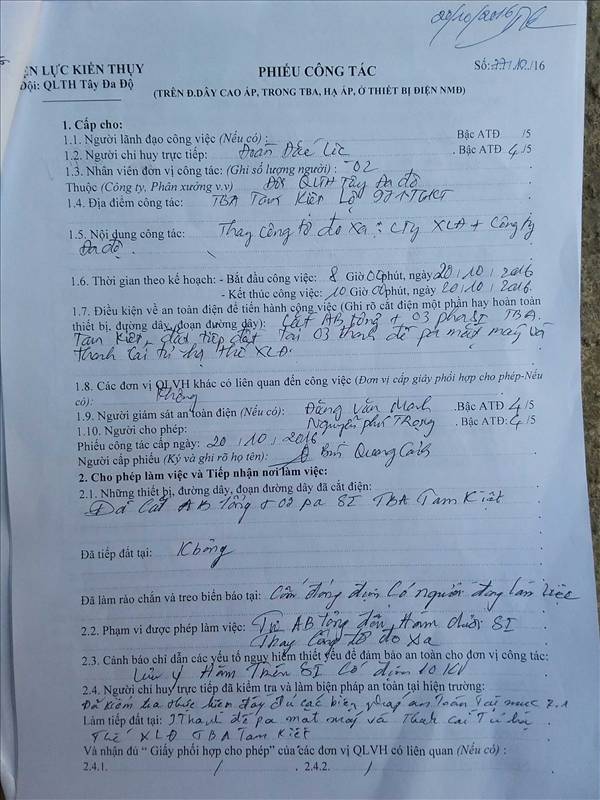 20/10/2016
ỆN LỰC KIẾN THỤY
Đội: QLTH Tây Đa Độ
PHIẾU CÔNG TÁC
Số: 77/10./16
(TRÊN Đ.DÂY CAO ÁP, TRONG TBA, HẠ ÁP, Ở THIẾT BỊ ĐIỆN NMĐ)
1. Cấp cho:
1.1. Người lãnh đạo công việc (Nếu có) : Bậc ATĐ /5
1.2. Người chỉ huy trực tiếp: Đoàn Đắc . Bậc ATĐ 4/5
1.3. Nhân viên đơn vị công tác: (Ghi số lượng người) : 02
Thuộc (Công ty, Phân xưởng v.v) Đội QLTH Tây Đa độ
1.4. Địa điểm công tác: TBA Tam Kiệt Lộ
1.5. Nội dung công tác: Thay công tơ đo xa: CTy XLD + Công ty
Đa độ.
1.6. Thời gian theo kế hoạch: - Bắt đầu công việc: 8 Giờ 00 phút, ngày 20/10/2016
- Kết thúc công việc: 10 Giờ 00 phút, ngày 20/10/2016.
1.7. Điều kiện về an toàn điện để tiến hành công việc (Ghi rõ cắt điện một phần hay hoàn toàn
thiết bị, đường dây, đoạn đường dây): Cắt AB tổng + 03 pha SI TBA.
Tam Kiệt, đặt tiếp đất tại 03 thanh để pa mát máy và
thanh cái tủ hạ thế XLD.
1.8. Các đơn vị QLVH khác có liên quan đến công việc (Đơn vị cấp giấy phối hợp cho phép-Nếu
có): Không
1.9. Người giám sát an toàn điện (Nếu có): Đặng Văn Mạnh .Bậc ATĐ 4/5
1.10. Người cho phép: Nguyễn Phú Trọng . Bậc ATĐ: 4/5
Phiếu công tác cấp ngày: 20/10/2016
Người cấp phiếu (Ký và ghi rõ họ tên): Bùi Quang Cảnh
2. Cho phép làm việc và Tiếp nhận nơi làm việc:
2.1. Những thiết bị, đường dây, đoạn đường dây đã cắt điện:
Đã cắt AB tổng + 03 pa SI TBA Tam Kiệt
Đã tiếp đất tại: Không
Đã làm rào chắn và treo biển báo tại: Cấm đóng điện Có người đang làm việc
2.2. Phạm vi được phép làm việc: Từ AB tổng đến Hàm dưới SI
Thay Công tơ đo xa
2.3. Cảnh báo chỉ dẫn các yếu tố nguy hiểm thiết yếu để đảm bảo an toàn cho đơn vị công tác:
Lưu ý Hàm Trên SI Có điện 10 KV
2.4. Người chỉ huy trực tiếp đã kiểm tra và làm biện pháp an toàn tại hiện trường:
Đã kiểm tra thực hiện đầy đủ các biện pháp an toàn tại mục 2.1
Làm tiếp đất tại: 3 Thanh để pa mát máy và Thanh cái Tủ hạ
Thế XLD TBA Tam Kiệt
Và nhận đủ “ Giấy phối hợp cho phép” của các đơn vị QLVH có liên quan (Nếu có) :
2.4.1. / . 2.4.2. /